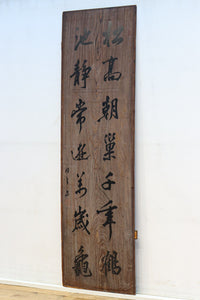 松高朝巣千年鶴
池静常遊萬歳龜